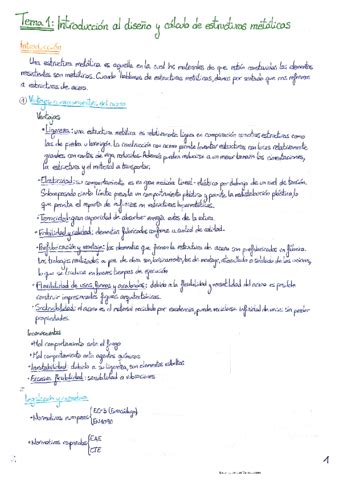 Tema 1: Introducción al diseño y cálculo de estructuras metálicas
Introducción
Una estructura metálica es aquella en la cual los materiales de que están constituidos los elementos
resistentes son metálicos. Cuando hablamos de estructuras metálicas, damos por sentado que nos referimos
a estructuras de acero.
① Ventajas e inconvenientes del acero
Ventajas
• Ligereza: una estructura metálica es relativamente ligera en comparación con otras estructuras como
las de piedra u hormigón. La construcción con acero permite levantar estructuras con luces relativamente
grandes con costes de repercusión. Además pueden reducirse a un menor tamaño las cimentaciones,
la estructura y el material a transportar.
• Elasticidad: su comportamiento es en gran medida lineal-elástico por debajo de un nivel de tensión.
Sobrepasado cierto límite presenta un comportamiento plástico y permite la redistribución plástica, lo
que permite el reparto de esfuerzos en estructuras hiperestáticas.
• Tenacidad: gran capacidad de absorber energía antes de la rotura.
• Fiabilidad y calidad: elementos fabricados conforme a control de calidad.
• Prefabricación y montaje: los elementos que forman la estructura de acero son prefabricados en fábrica.
Los trabajos realizados a pie de obra son básicamente de montaje, atornillado o soldado de las uniones,
lo que se traduce en menores tiempos de ejecución
• Flexibilidad de usos, formas y acabados: debido a la flexibilidad y versatilidad del acero es posible
construir impresionantes figuras arquitectónicas.
• Sostenibilidad: el acero es el material reciclado por excelencia, puede reciclarse infinidad de veces sin perder
propiedades
Inconvenientes
• Mal comportamiento ante el fuego
• Mal comportamiento ante agentes químicos
• Inestabilidad: debido a su ligereza, son elementos esbeltos
• Excesiva flexibilidad: sensibilidad a vibraciones
Legislación y normativa
• Normativas europeas EC-3 (Eurocódigo)
EN1090
• Normativas españolas CAE
CTE
1